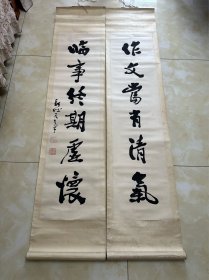 作文當有清氣
臨事於期虛懷